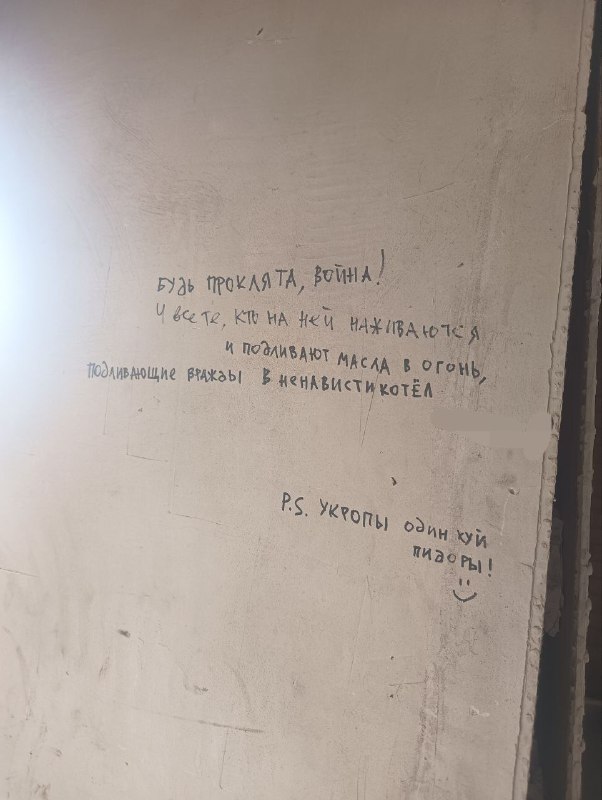 Будь проклята, война!
И все те, кто на ней наживаются
и подливают масла в огонь,
подливающие вражды в ненависти котёл
P.S. Укропы один хуй
пидоры!